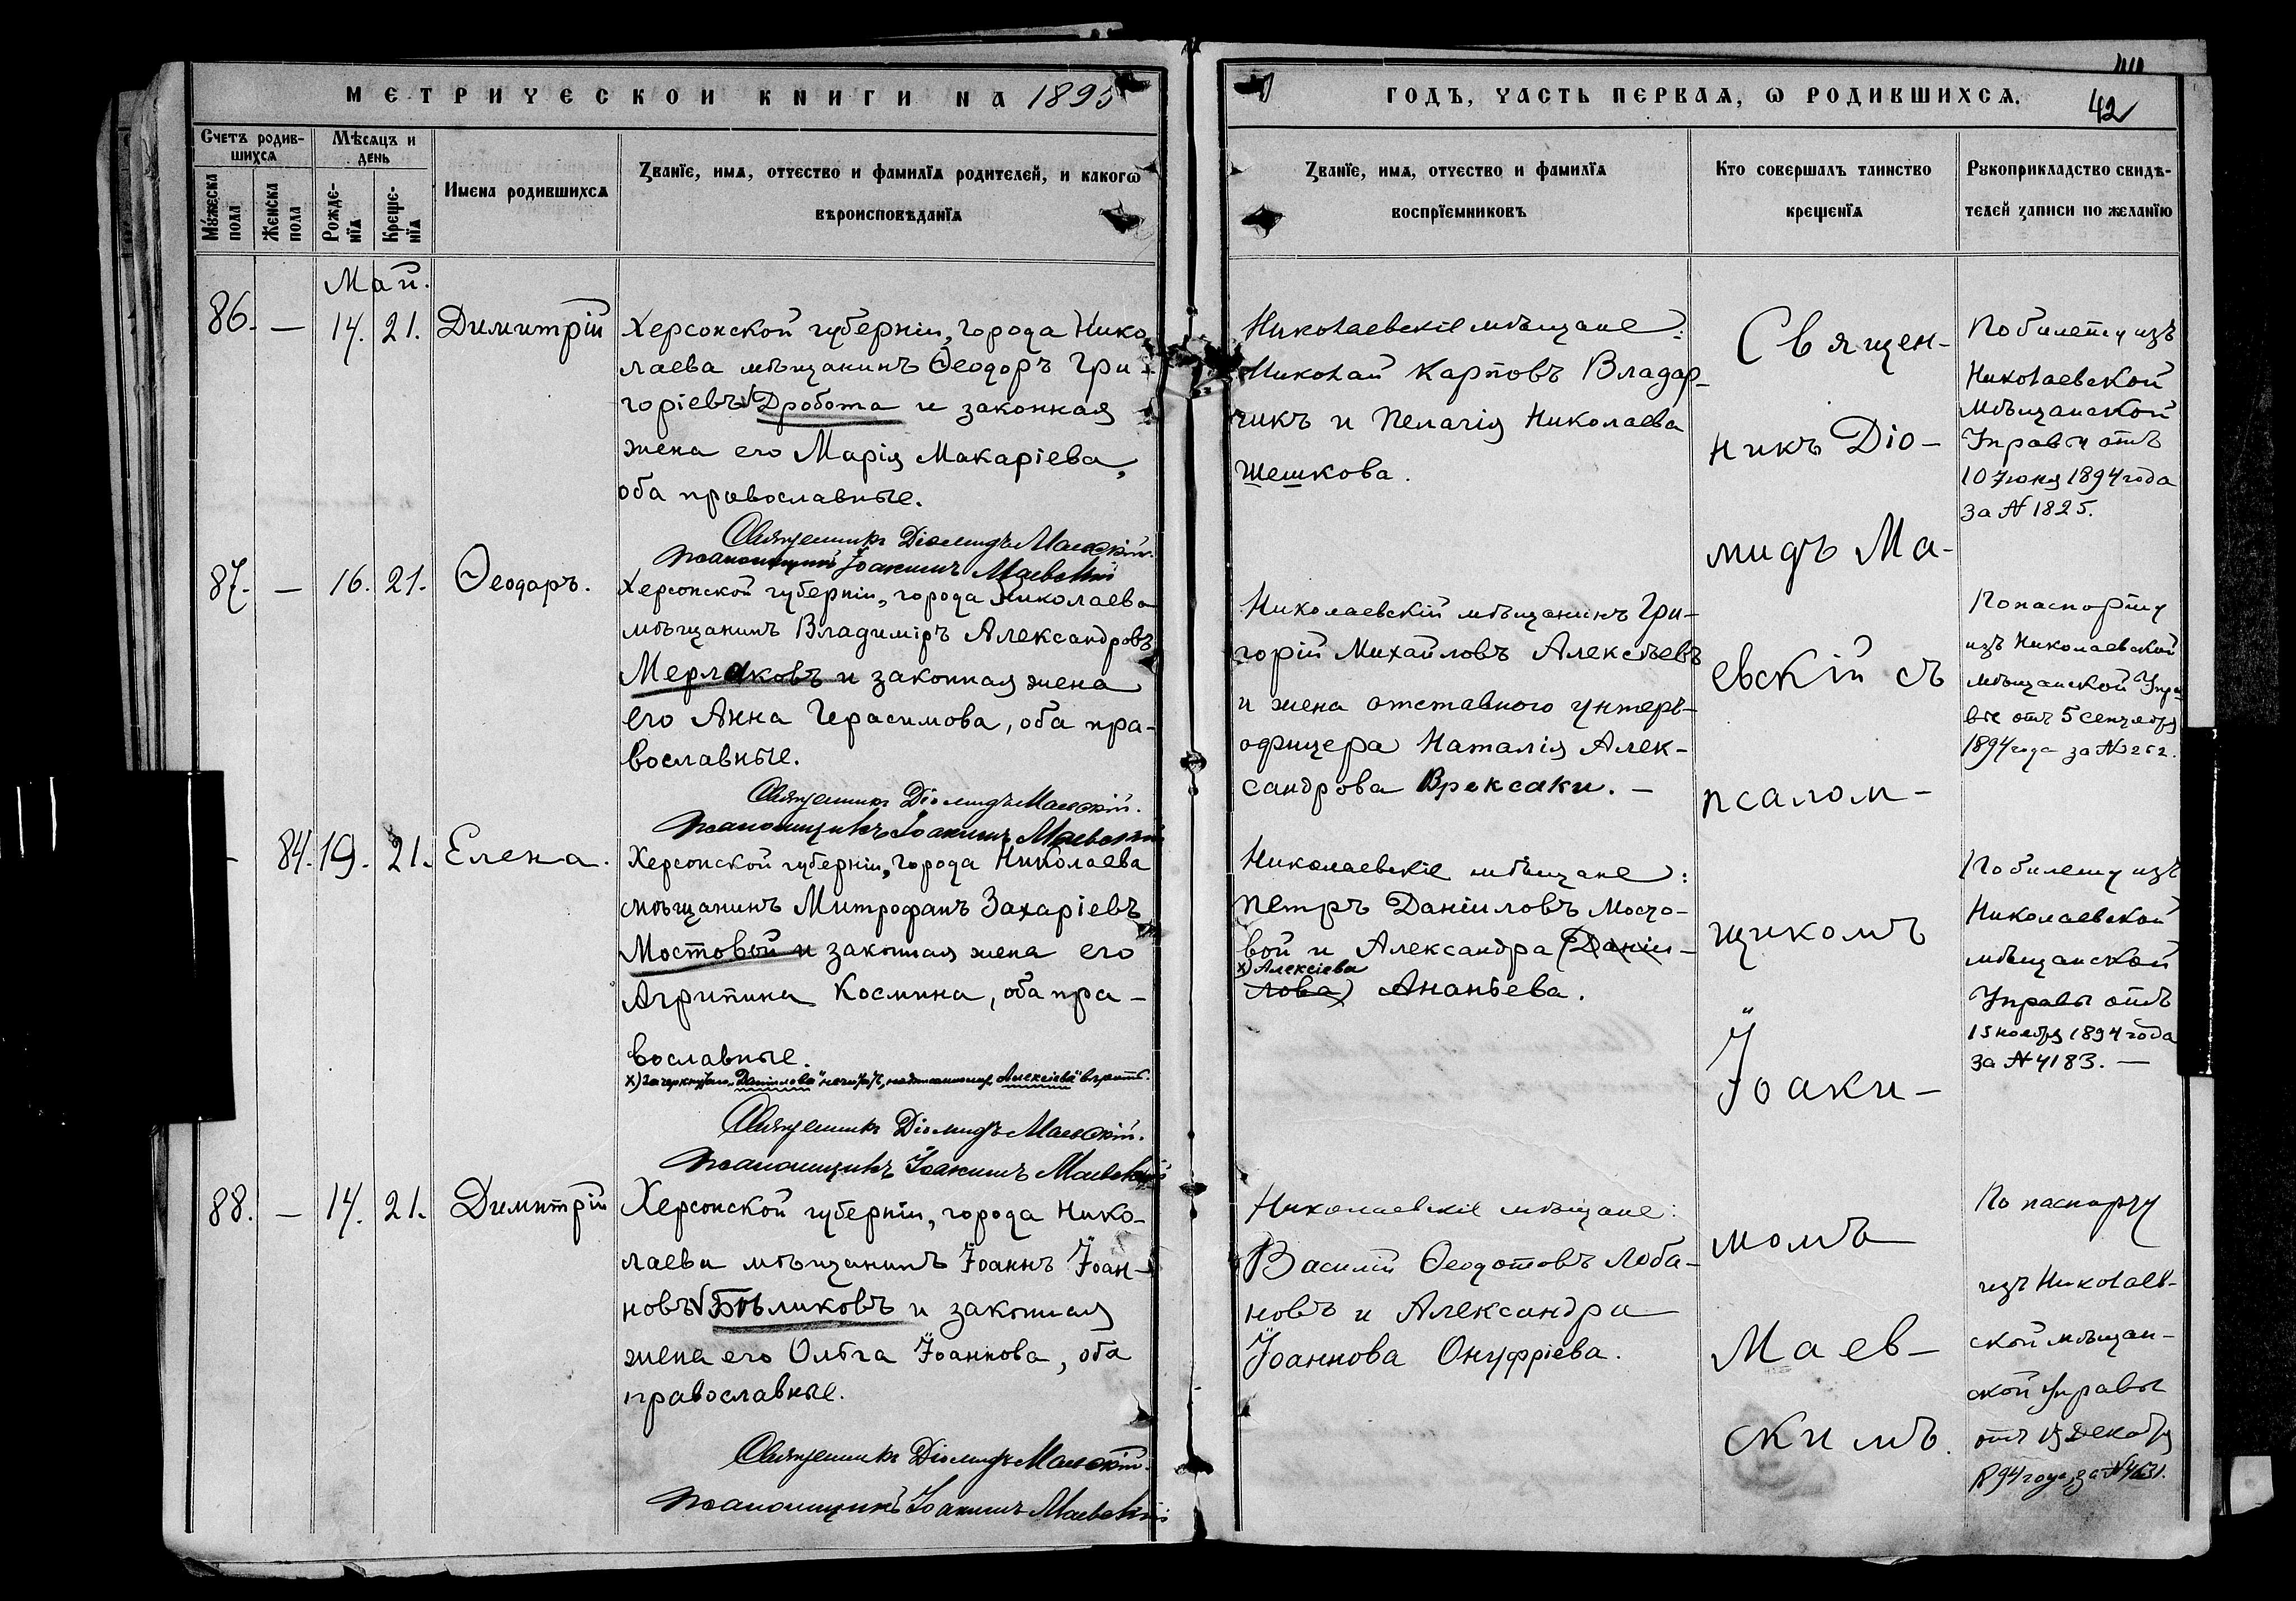 МЕТРИЧЕСКОЙ КНИГИ НА 1895
ГОДЪ, ЧАСТЬ ПЕРВАЯ, Ѡ РОДИВШИХСЯ.
42
Счетъ родив-
шихся
Мѣсяцъ и
день
Мужеска
пола
Женска
пола
Рожде-
нїя
Креще-
нїя
Имена родившихся
Званїе, имя, отчество и фамилїя родителей, и какогѡ
вѣроисповѣданїя
Званїе, имя, отчество и фамилїя
воспрїемниковъ
Кто совершалъ таинство
крещенїя
Рукоприкладство свидѣ-
телей записи по желанїю
Май.
86. — 14. 21. Димитрій
Херсонской губерніи, города Нико
лаева мѣщанинъ Ѳеодоръ Гри-
горіевъ Дробота и законная
жена его Марія Макаріева,
оба православные.
Священникъ Діомидъ Маевскій.
Псаломщикъ Іоакимъ Маевскій
Николаевскіе мѣщане:
Николай Карповъ Владар-
чикъ и Пелагія Николаева
Шешкова.
По билету изъ
Николаевской
Мѣщанской
Управы отъ
10 Іюня 1894 года
за № 1825.
87. — 16. 21. Ѳеодоръ.
Херсонской губерніи, города Николаева
мѣщанинъ Владиміръ Александровъ
Мерлаковъ и законная жена
его Анна Герасимова, оба пра-
вославные.
Священникъ Діомидъ Маевскій.
Псаломщикъ Іоакимъ Маевскій
Николаевскій мѣщанинъ Гри-
горій Михайловъ Алексѣевъ
и жена отставного унтеръ-
офицера Наталія Алек-
сандрова Врексаки. —
По паспорту
изъ Николаевской
мѣщанской Упра-
вы отъ 5 сентября
1894 года за №
— 84. 19. 21. Елена.
Херсонской губерніи, города Николаева
мѣщанинъ Митрофанъ Захаріевъ
Мостовой и законная жена его
Агрипина Космина, оба пра-
вославные.
х) Зачеркнутаго „Данилова" не читать, надписанному „Алексіева" вѣрить.
Священникъ Діомидъ Маевскій.
Псаломщикъ Іоакимъ Маевскій
Николаевскіе мѣщане:
Петръ Даніиловъ Мосто-
вой и Александра (Даніи-
х) Алексіева
лова) Ананьева.
По билету изъ
Николаевской
мѣщанской
Управы отъ
15 ноября 1894 года
за № 4183. —
88. — 14. 21. Димитрій
Херсонской губерніи, города Нико-
лаева мѣщанинъ Іоаннъ Іоан-
новъ Бѣликовъ и законная
жена его Ольга Іоаннова, оба
православные.
Священникъ Діомидъ Маевскій.
Псаломщикъ Іоакимъ Маевскій
Николаевскіе мѣщане:
Василій Ѳеодотовъ Лоба-
новъ и Александра
Іоаннова Онуфріева.
По паспорту
изъ Николаев-
ской мѣщан-
ской Управы
отъ Декабря
1894 года, за
Священ-
никъ Діо-
мидъ Ма-
евскій съ
псалом-
щикомъ
Іоаки-
момъ
Маев-
скимъ.